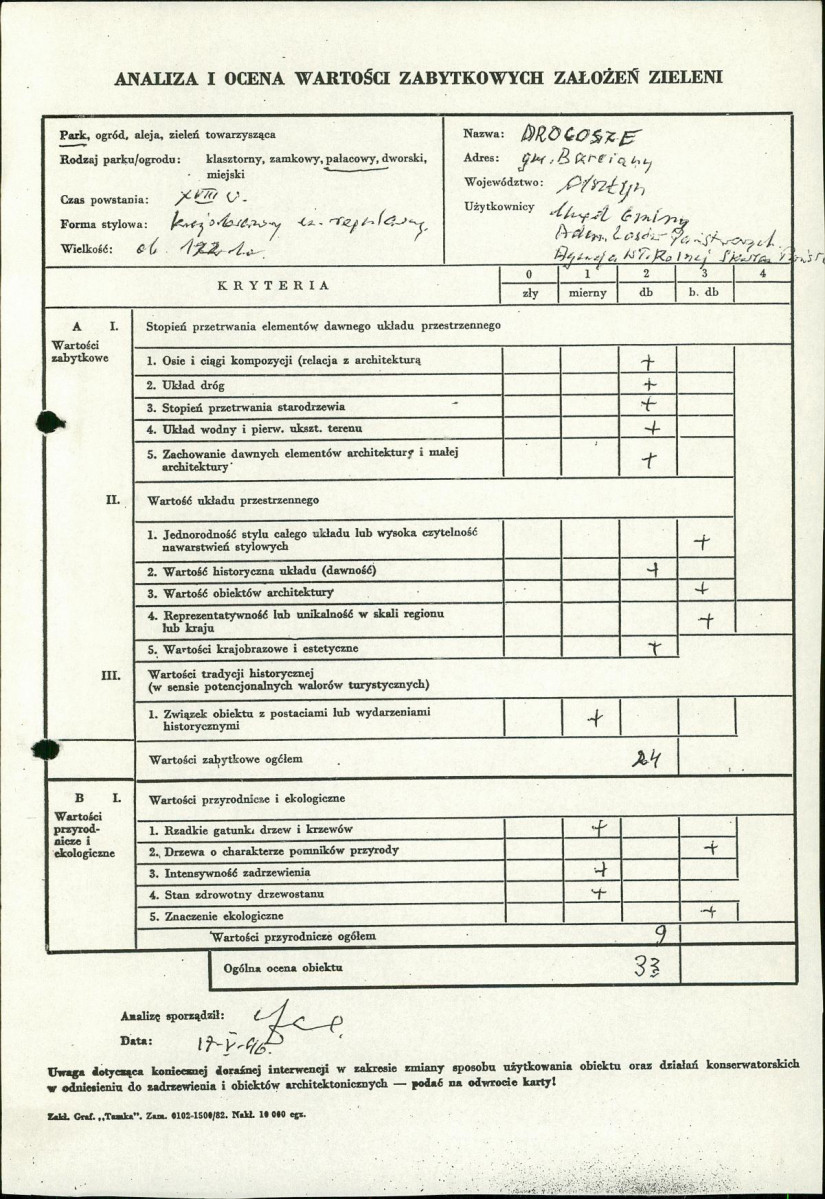 ANALIZA I OCENA WARTOŚCI ZABYTKOWYCH ZAŁOŻEŃ ZIELENI
Park, ogród, aleja, zieleń towarzysząca
Rodzaj parku/ogrodu: klasztorny, zamkowy, pałacowy, dworski,
miejski
Czas powstania: XVIII w.
Forma stylowa: krajobrazowy
Wielkość: ok.
Nazwa: DROGOSZE
Adres: gm. Barciany
Województwo: Olsztyn
Użytkownicy Urząd Gminy
Adm. Lasów Państwowych
Agencja Wł. Rolnej Skarbu Państwa
KRYTERIA
0 1 2 3 4
zły mierny db b. db
A I. Stopień przetrwania elementów dawnego układu przestrzennego
Wartości
zabytkowe
1. Osie i ciągi kompozycji (relacja z architekturą +
2. Układ dróg +
3. Stopień przetrwania starodrzewia +
4. Układ wodny i pierw. ukszt. terenu +
5. Zachowanie dawnych elementów architektury i małej
architektury +
II. Wartość układu przestrzennego
1. Jednorodność stylu całego układu lub wysoka czytelność
nawarstwień stylowych +
2. Wartość historyczna układu (dawność) +
3. Wartość obiektów architektury +
4. Reprezentatywność lub unikalność w skali regionu
lub kraju +
5. Wartości krajobrazowe i estetyczne +
III. Wartości tradycji historycznej
(w sensie potencjonalnych walorów turystycznych)
1. Związek obiektu z postaciami lub wydarzeniami
historycznymi +
Wartości zabytkowe ogółem 24
B I. Wartości przyrodnicze i ekologiczne
Wartości
przyrod-
nicze i
ekologiczne
1. Rzadkie gatunki drzew i krzewów +
2. Drzewa o charakterze pomników przyrody +
3. Intensywność zadrzewienia +
4. Stan zdrowotny drzewostanu +
5. Znaczenie ekologiczne +
Wartości przyrodnicze ogółem 9
Ogólna ocena obiektu 33
Analizę sporządził:
Data: 17-V-96.
Uwaga dotycząca koniecznej doraźnej interwencji w zakresie zmiany sposobu użytkowania obiektu oraz działań konserwatorskich
w odniesieniu do zadrzewienia i obiektów architektonicznych — podać na odwrocie karty!
Zakł. Graf. „Tamka". Zam. 0102-1500/82. Nakł. 10 000 egz.